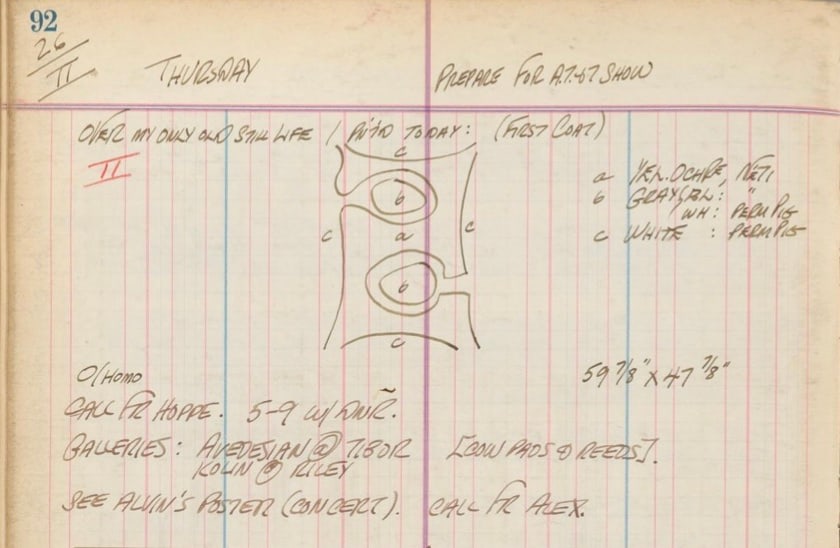 92
26/II THURSDAY PREPARE FOR SHOW
OVER MY ONLY OLD STILL LIFE / TODAY: (FIRST COAT)
II
c
b
a
c
c
b
c
a YEL. OCHRE,
b GRAY BL: "
WH: PERM PIG
c WHITE : PERM PIG
O/HOMO
59 7/8" X 47 7/8"
CALL FR HOPPE. 5-9 W/ DNR.
GALLERIES: AVEDESIAN @ TIBOR [COW PADS & REEDS].
KOLIN @ RILEY
SEE ALVIN'S POSTER (CONCERT). CALL FR ALEX.